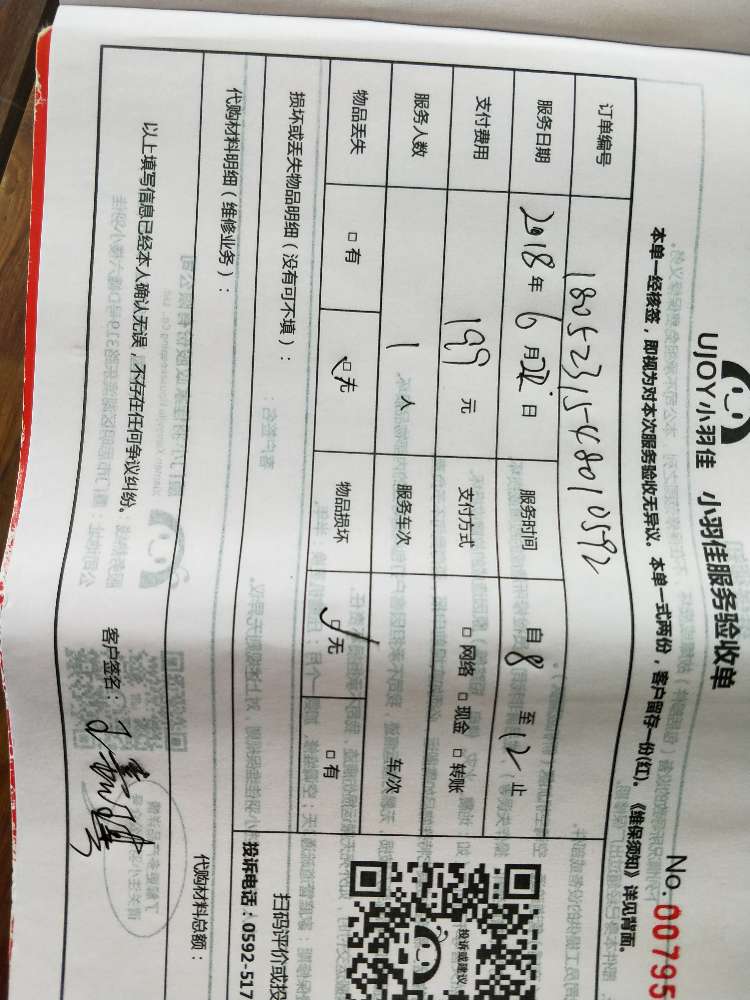 UJOY小羽佳 小羽佳服务验收单
No. 00795
本单一经核签，即视为对本次服务验收无异议。本单一式两份，客户留存一份(红)。《维保须知》详见背面。
订单编号 1805231548010592
服务日期 2018年 6月 日 服务时间 自 8 至 12 止
支付费用 199 元 支付方式 □ 网络 □ 现金 □ 转账
服务人数 1 人 服务车次 车/次
物品丢失 □ 有 □ 无 物品损坏 □ 无 □ 有
损坏或丢失物品明细（没有可不填）：
代购材料明细（维修业务）：
代购材料总额：
以上填写信息已经本人确认无误，不存在任何争议纠纷。
客户签名：
投诉或建议
扫码评价或投
投诉电话：0592-517